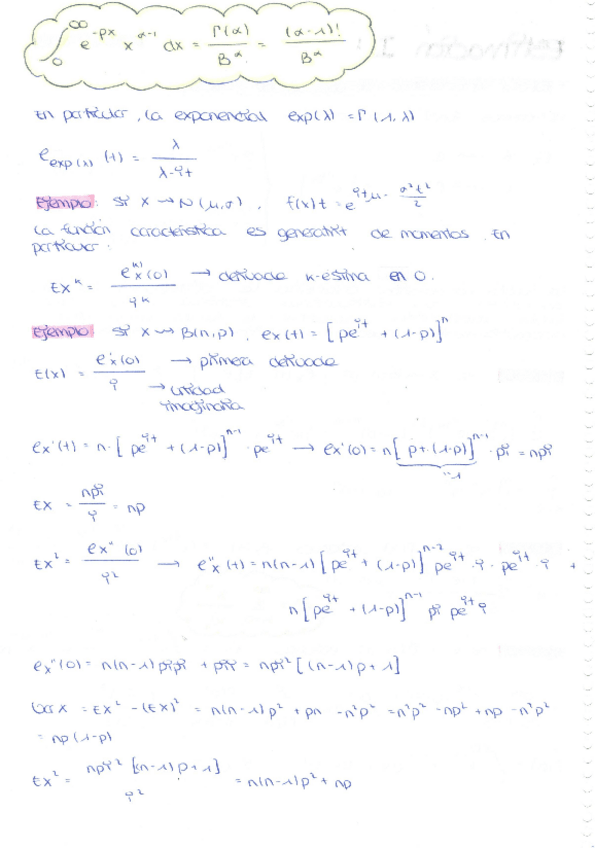 ∫₀^∞ e^{-px} x^{α-1} dx = Γ(α)/B^α = (α-1)!/B^α
En particular, la exponencial exp(λ) = Γ(1,λ)
φ_{exp(λ)}(t) = λ/(λ-it)
Ejemplo: Si X → N(μ,σ), f(x)t = e^{itμ - σ²t²/2}
La función característica es generatriz de momentos. En
particular:
EX^k = φ_X^{k)}(0)/i^k → derivada k-esima en 0.
Ejemplo: Si X → B(n,p), φx(t) = [pe^{it} + (1-p)]^n
E(x) = φ'x(0)/i → primera derivada
→ unidad
imaginaria
φx'(t) = n·[pe^{it} + (1-p)]^{n-1} · pe^{it} → φx'(0) = n[p+(1-p)]^{n-1} · pi = npi
"1
EX = npi/i = np
EX² = φx''(0)/i² → φ''x(t) = n(n-1)[pe^{it} + (1-p)]^{n-2} pe^{it} · i · pe^{it} · i +
n[pe^{it} + (1-p)]^{n-1} pi pe^{it} i
φx''(0) = n(n-1)pipi + pii = npi²[(n-1)p+1]
Var X = EX² - (EX)² = n(n-1)p² + pn - n²p² = n²p² - np² + np - n²p²
= np(1-p)
EX² = npi²[(n-1)p+1]/i² = n(n-1)p² + np